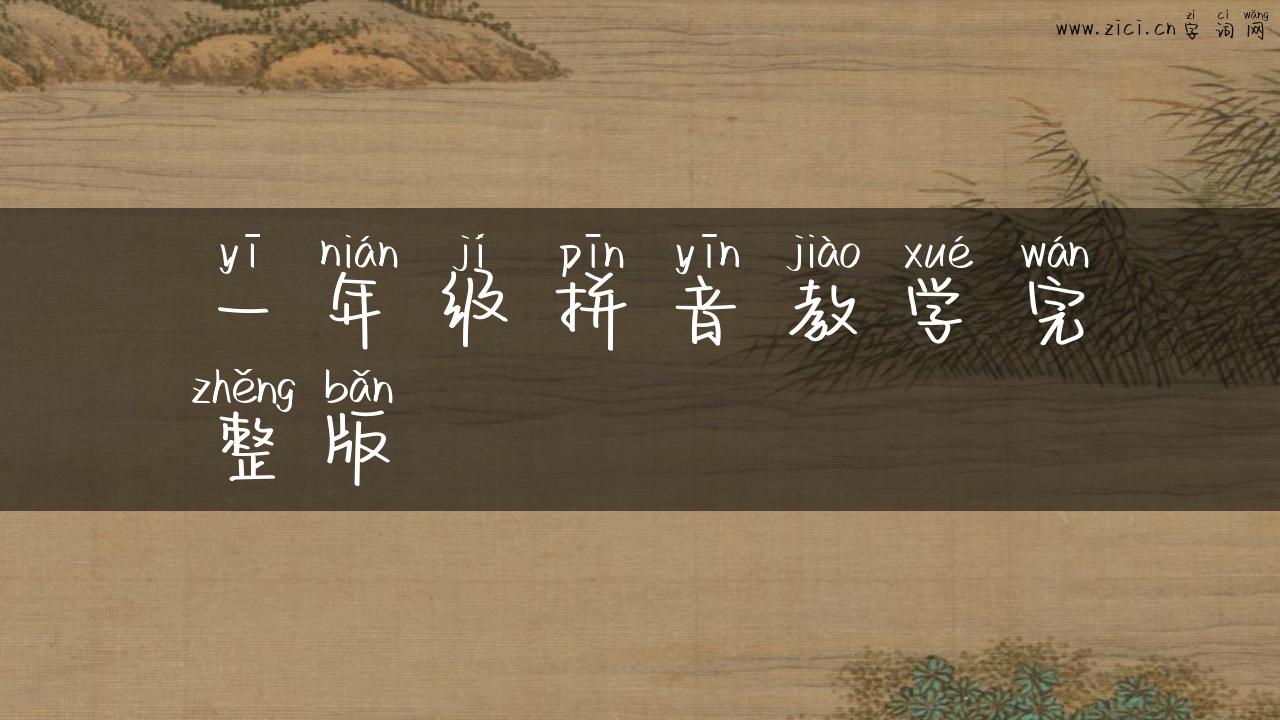 zì cí wǎng
www.zici.cn 字词网
yī nián jí pīn yīn jiào xué wán
一年级拼音教学完
zhěng bǎn
整版